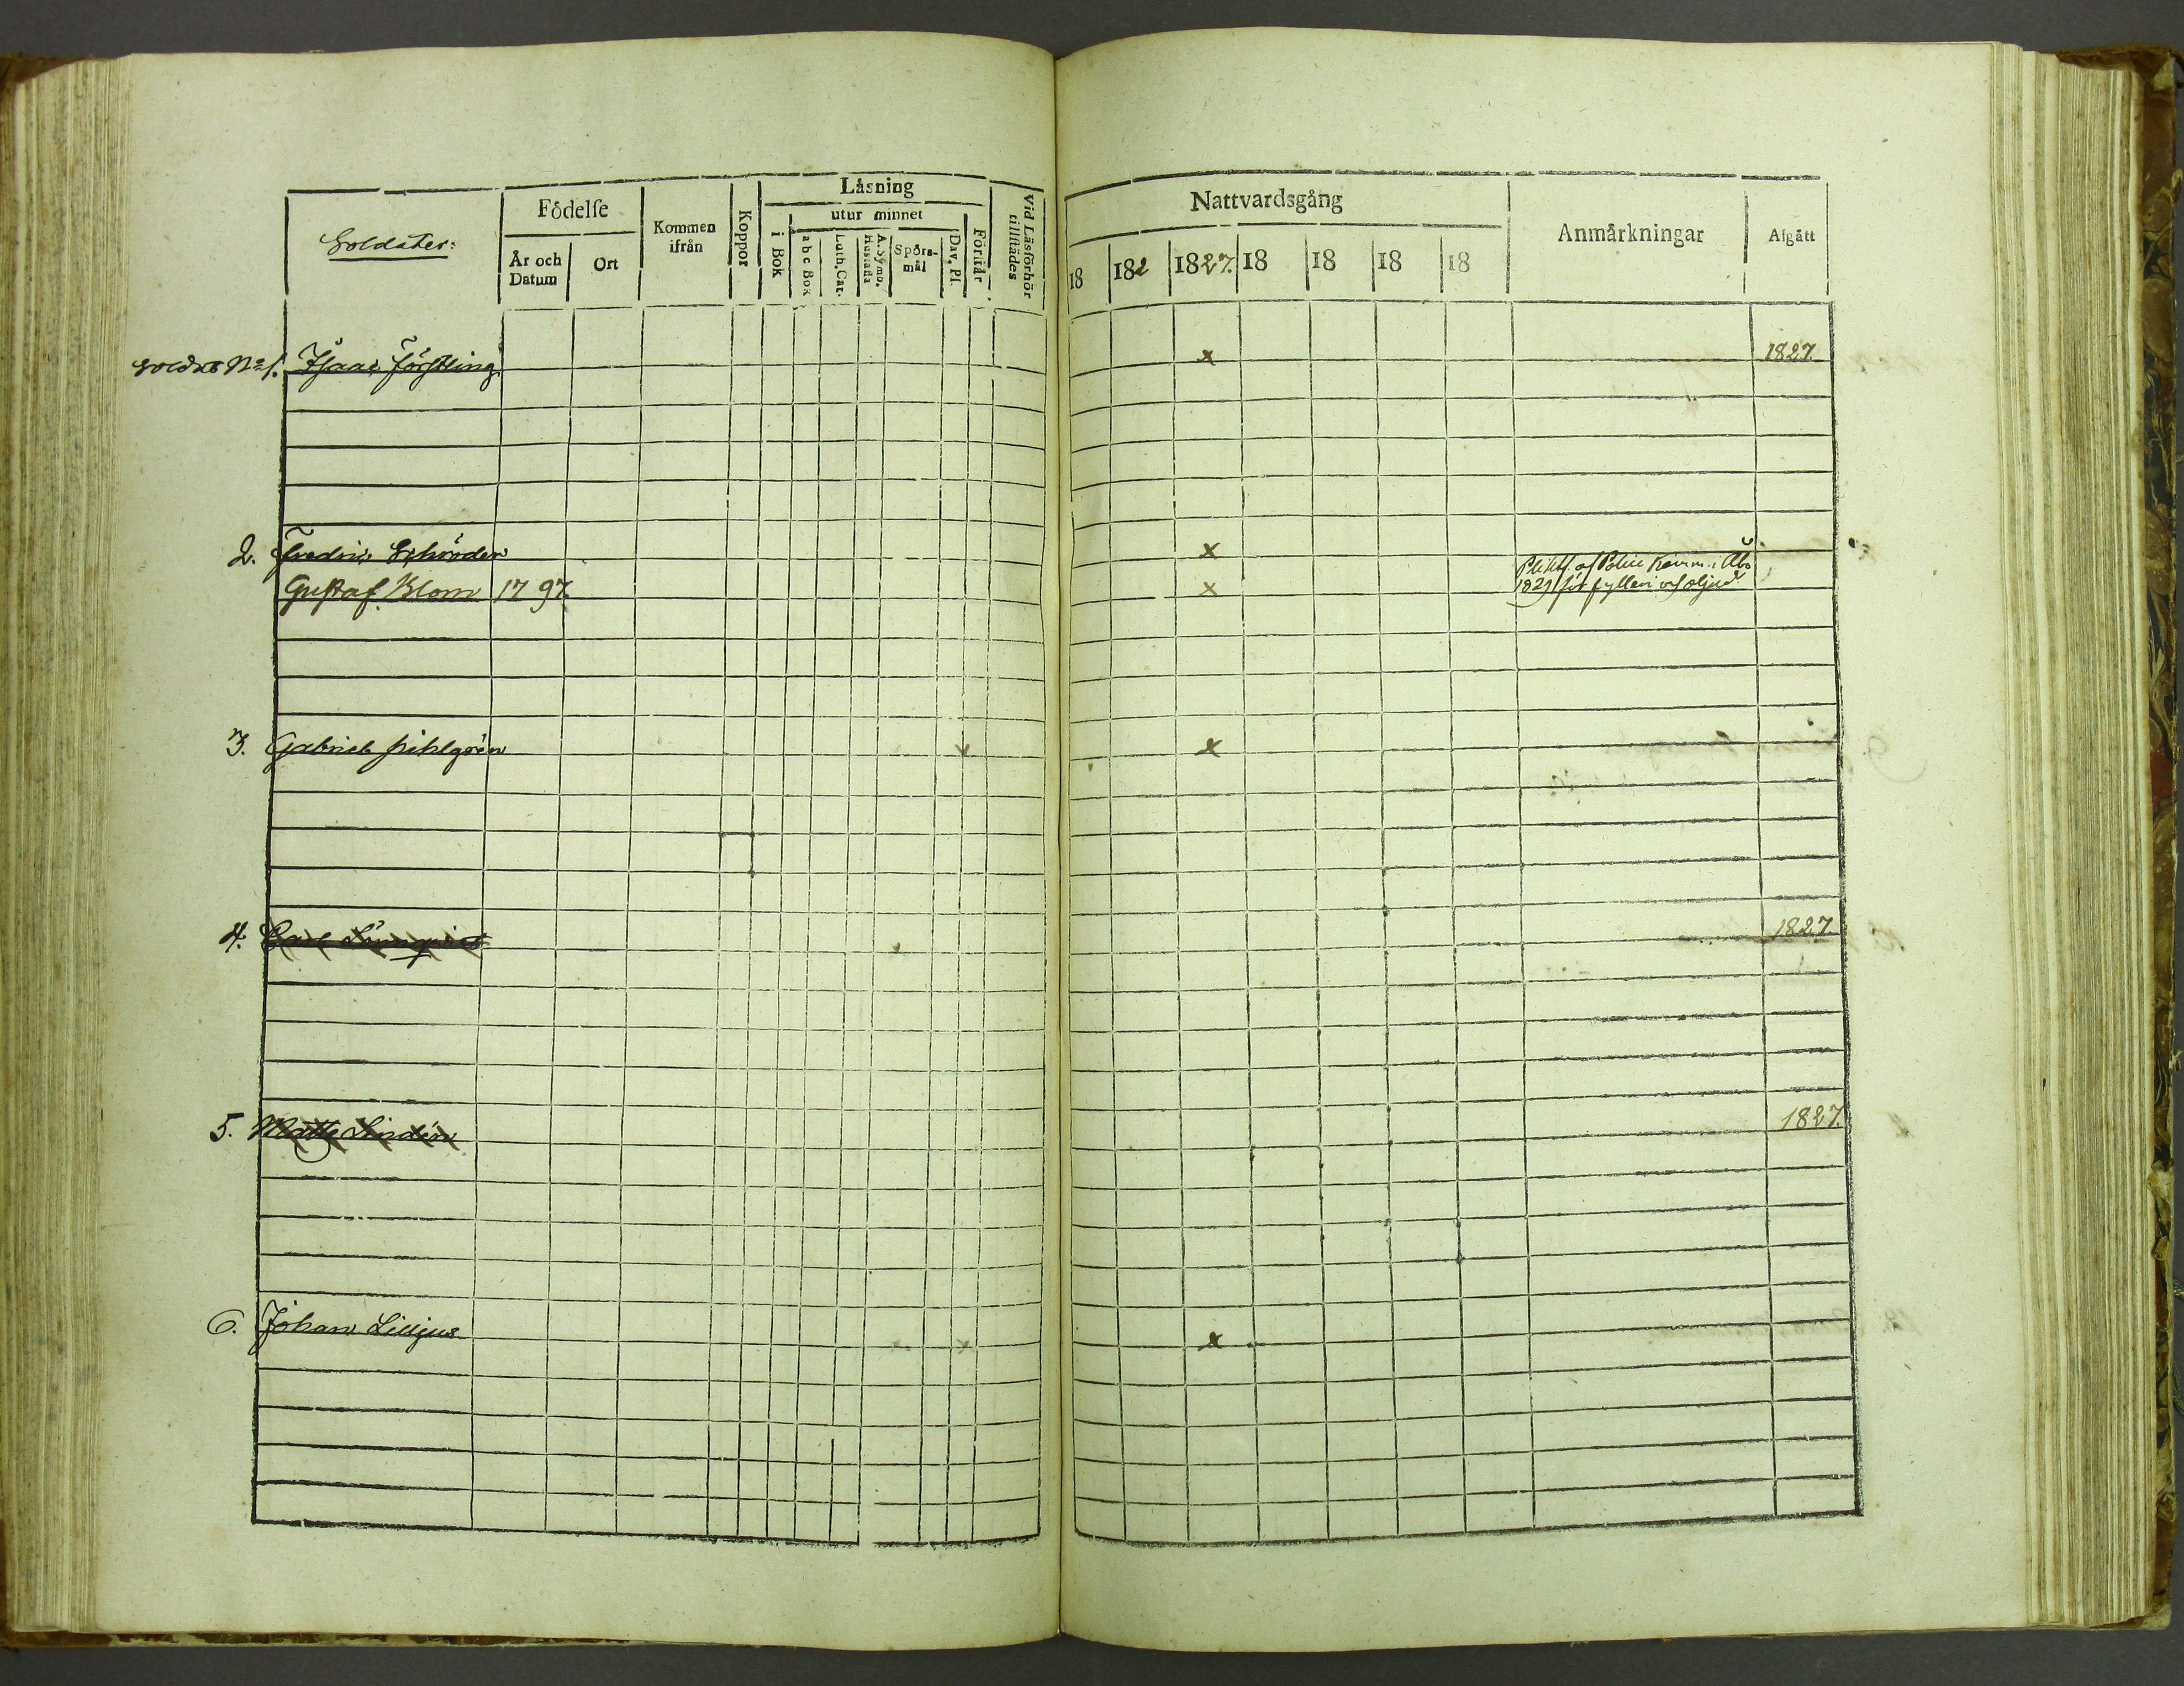 Soldater:
Födelſe
År och Datum
Ort
Kommen ifrån
Koppor
Läsning
i Bok
utur minnet
a b c Bok
Luth. Cat.
A. Symb. Hustafla
Spörsmål
Dav. Pſ.
Förſtår
Vid Läsförhör tillſtädes
Nattvardsgång
18
182
1827.
18
18
18
18
Anmärkningar
Afgått
Soldat No 1. Isaac Förstling x 1827
2. Fredric Schröder x
Gustaf Blom 1797. x
af Police Kamm. i Åbo
1829 för fylleri och oljud
3. Gabriel Pihlgrén x x
4. Carl 1827.
5. Matts Lindén 1827.
6. Johan Lilljus x x